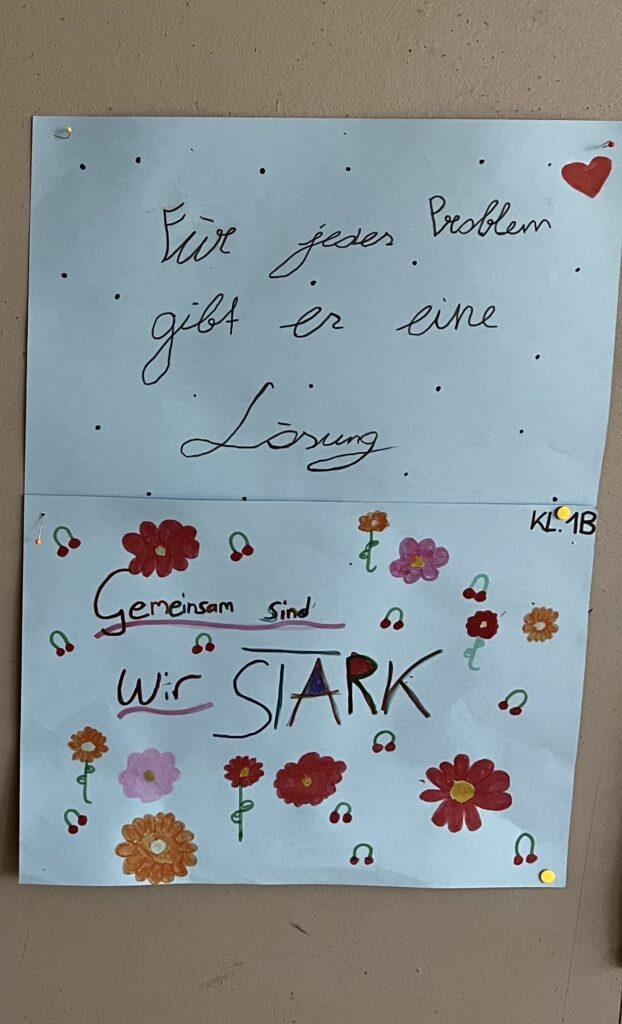 Für jedes Problem
gibt es eine
Lösung
KL. 1B
Gemeinsam sind
Wir STARK